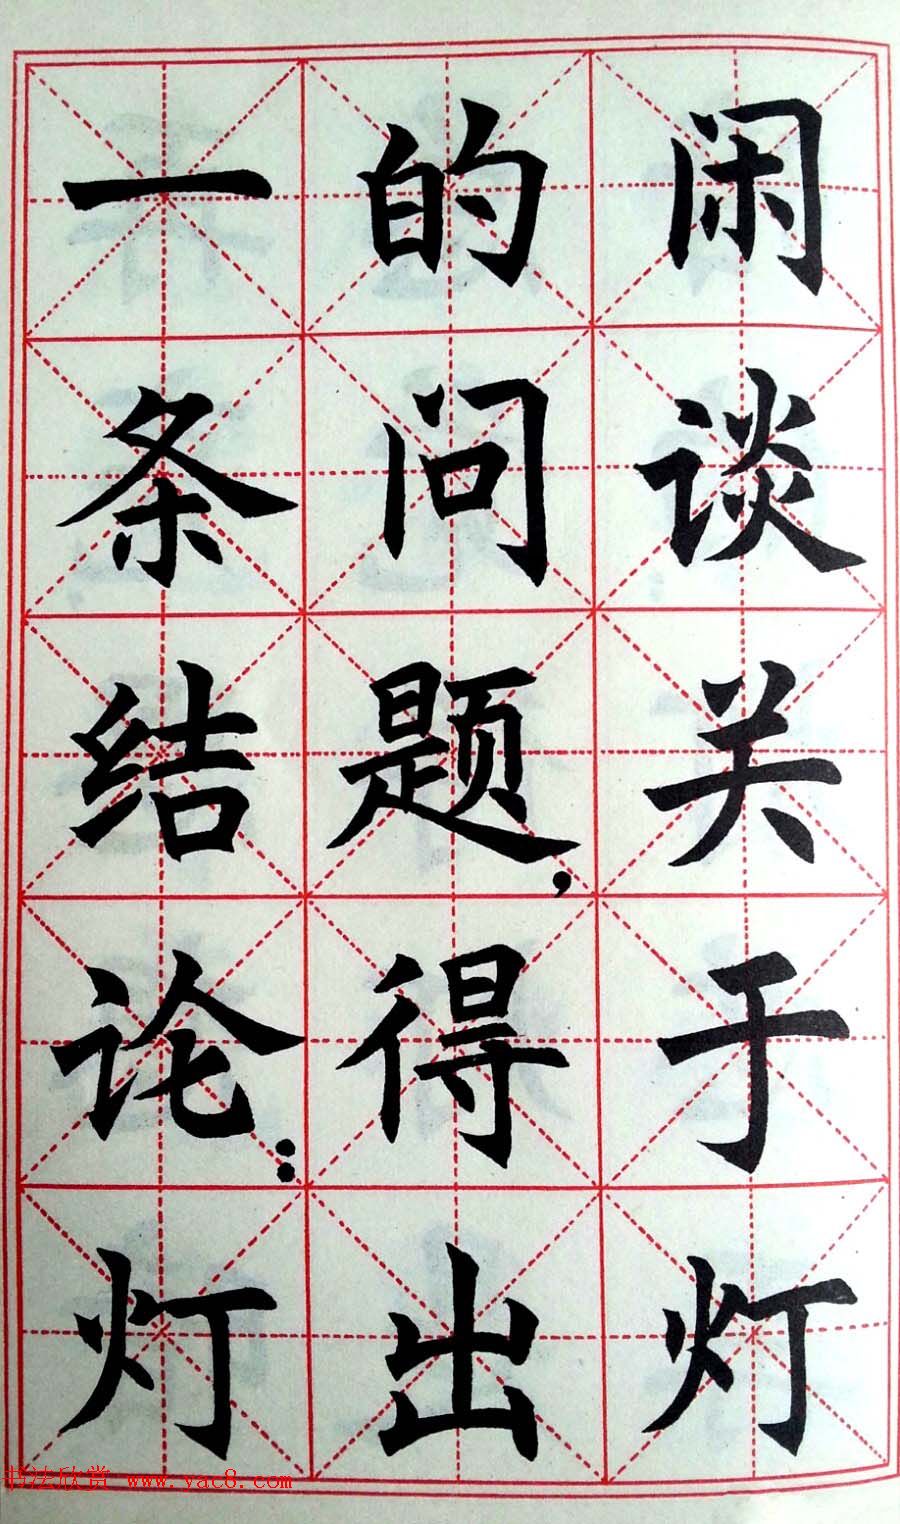 闲谈关于灯
的问题，得出
一条结论：灯
书法欣赏 www.yac8.com